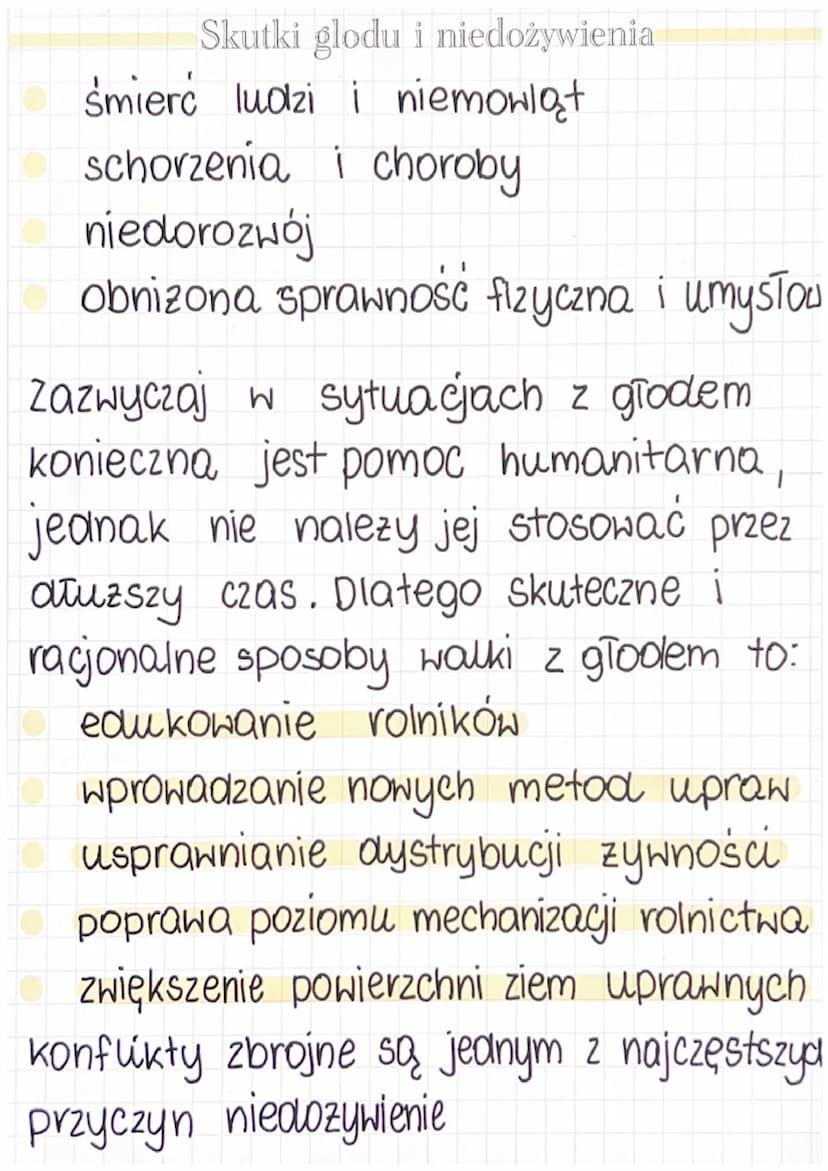 Skutki glodu i niedożywienia
śmierć ludzi i niemowląt
schorzenia i choroby
niedorozwój
obniżona sprawność fizyczna i umysłow
Zazwyczaj w sytuacjach z głodem
konieczna jest pomoc humanitarna,
jednak nie należy jej stosować przez
dłuższy czas. Dlatego skuteczne i
racjonalne sposoby walki z głodem to:
edukowanie rolników
wprowadzanie nowych metod upraw
usprawnianie dystrybucji żywności
poprawa poziomu mechanizacji rolnictwa
zwiększenie powierzchni ziem uprawnych
konflikty zbrojne są jednym z najczęstszyc
przyczyn niedożywienie